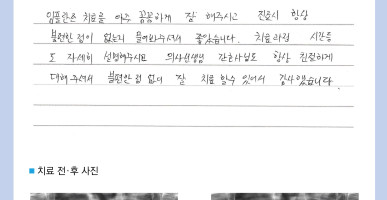 임플란트 치료를 아주 꼼꼼하게 잘 해주시고 진료시 항상
불편한 점이 없는지 물어봐주셔서 좋았습니다. 치료과정 시간들
도 자세히 설명해주시고 의사선생님 간호사님도 항상 친절하게
대해주셔서 불편한점 없이 잘 치료 할수 있어서 감사했습니다.
■ 치료 전·후 사진